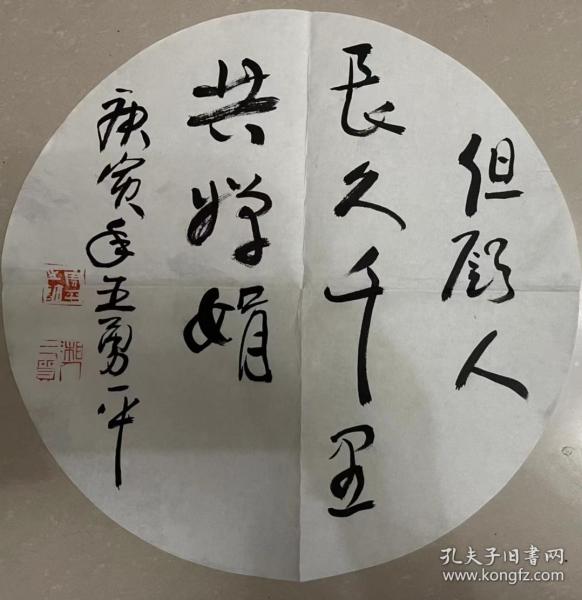 但願人
長久千里
共嬋娟
庚寅年王勇平
孔夫子旧书网
www.kongfz.com